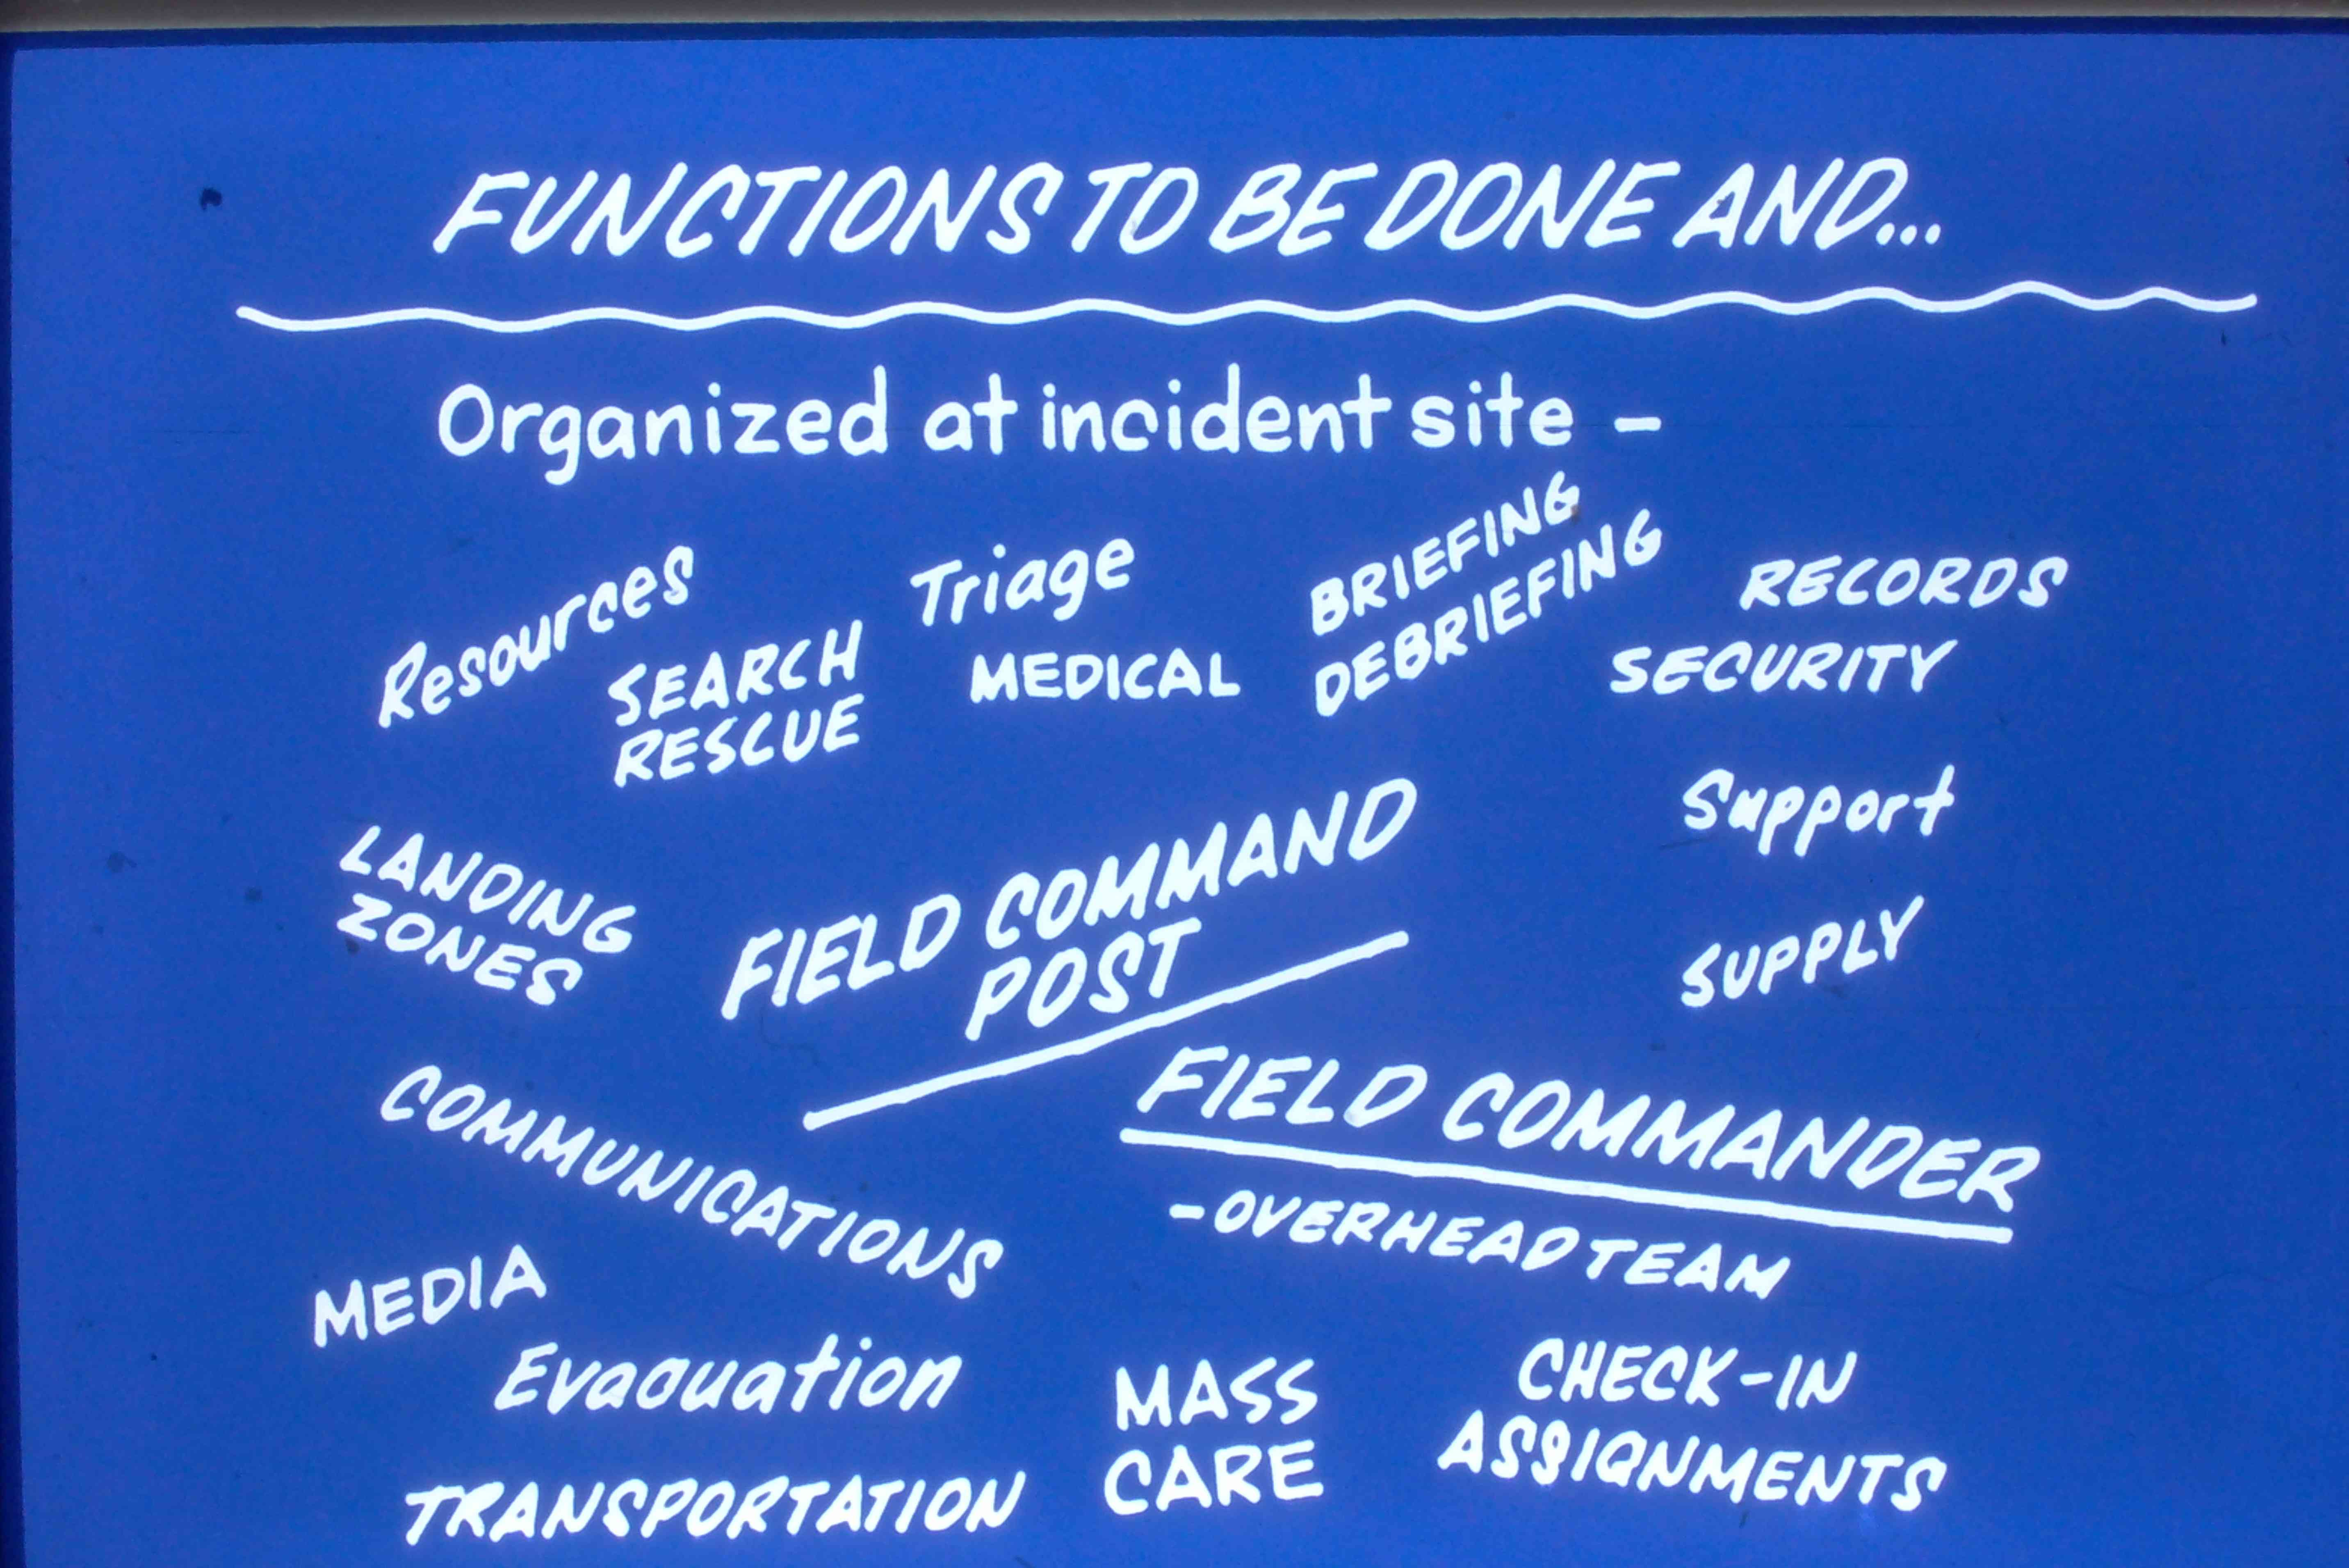 FUNCTIONS TO BE DONE AND...
Organized at incident site -
Resources
SEARCH
RESCUE
Triage
MEDICAL
BRIEFING
DEBRIEFING
RECORDS
SECURITY
Support
SUPPLY
LANDING
ZONES
FIELD COMMAND
POST
FIELD COMMANDER
-OVERHEAD TEAM
COMMUNICATIONS
MEDIA
Evacuation
TRANSPORTATION
MASS
CARE
CHECK-IN
ASSIGNMENTS